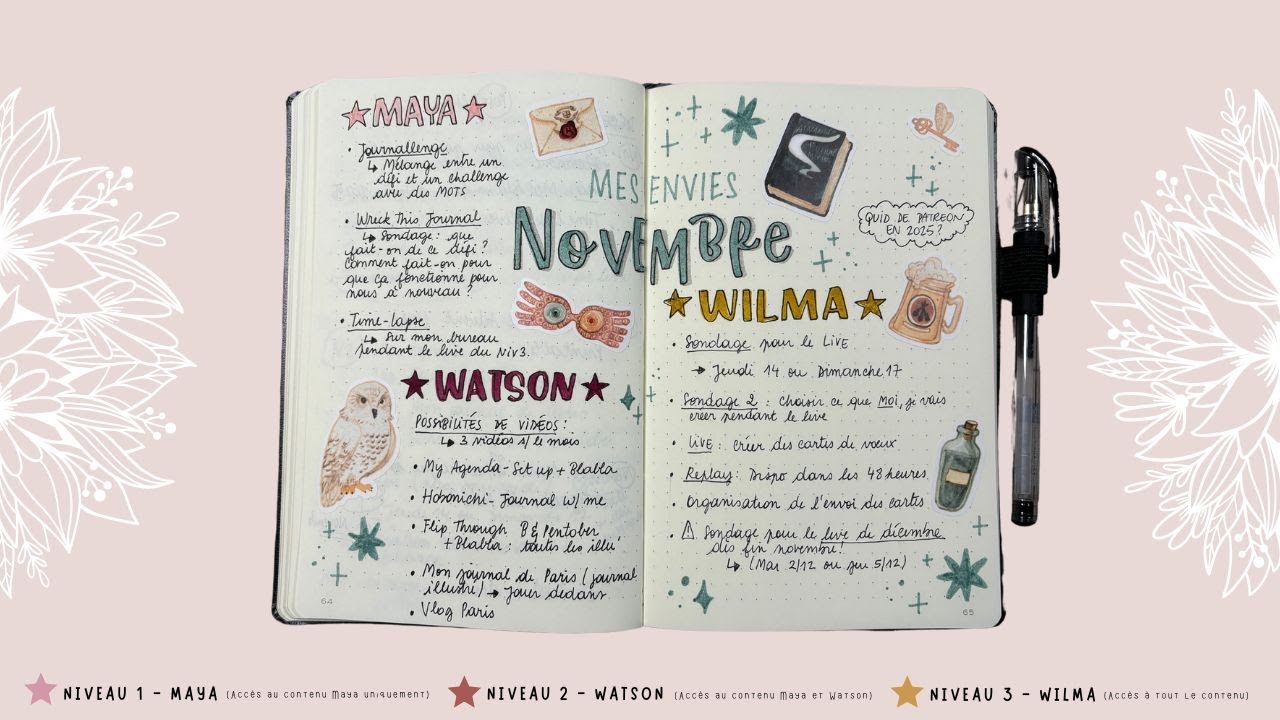 ★ MAYA ★
• Journallenge
↳ Mélange entre un
défi et un challenge
avec des MOTS
• Wreck This Journal
↳ Sondage : que
fait-on de ce défi ?
Comment fait-on pour
que ça fonctionne pour
nous à nouveau ?
• Time-lapse
↳ Sur mon bureau
pendant le live du Niv3.
★ WATSON ★
POSSIBILITÉS DE VIDÉOS :
↳ 3 vidéos s/ le mois
• My Agenda - Set up + Blabla
• Hobonichi - Journal w/ me
• Flip Through B6 Pentober
+ Blabla : toutes les illu'
• Mon journal de Paris (journal
illustré) → Jouer dedans
• Vlog Paris
64
MES ENVIES
NOVEMBRE
QUID DE PATREON
EN 2025 ?
★ WILMA ★
• Sondage pour le LIVE
→ Jeudi 14 ou Dimanche 17
• Sondage 2 : Choisir ce que MOI, je vais
créer pendant le live
• LIVE : créer des cartes de voeux
• Replay : Dispo dans les 48 heures.
• Organisation de l'envoi des cartes.
• ⚠ Sondage pour le live de décembre
dès fin novembre !
↳ (Mar 2/12 ou jeu 5/12)
65
NIVEAU 1 - MAYA (Accès au contenu Maya uniquement)
NIVEAU 2 - WATSON (Accès au contenu Maya et Watson)
NIVEAU 3 - WILMA (Accès à tout le contenu)